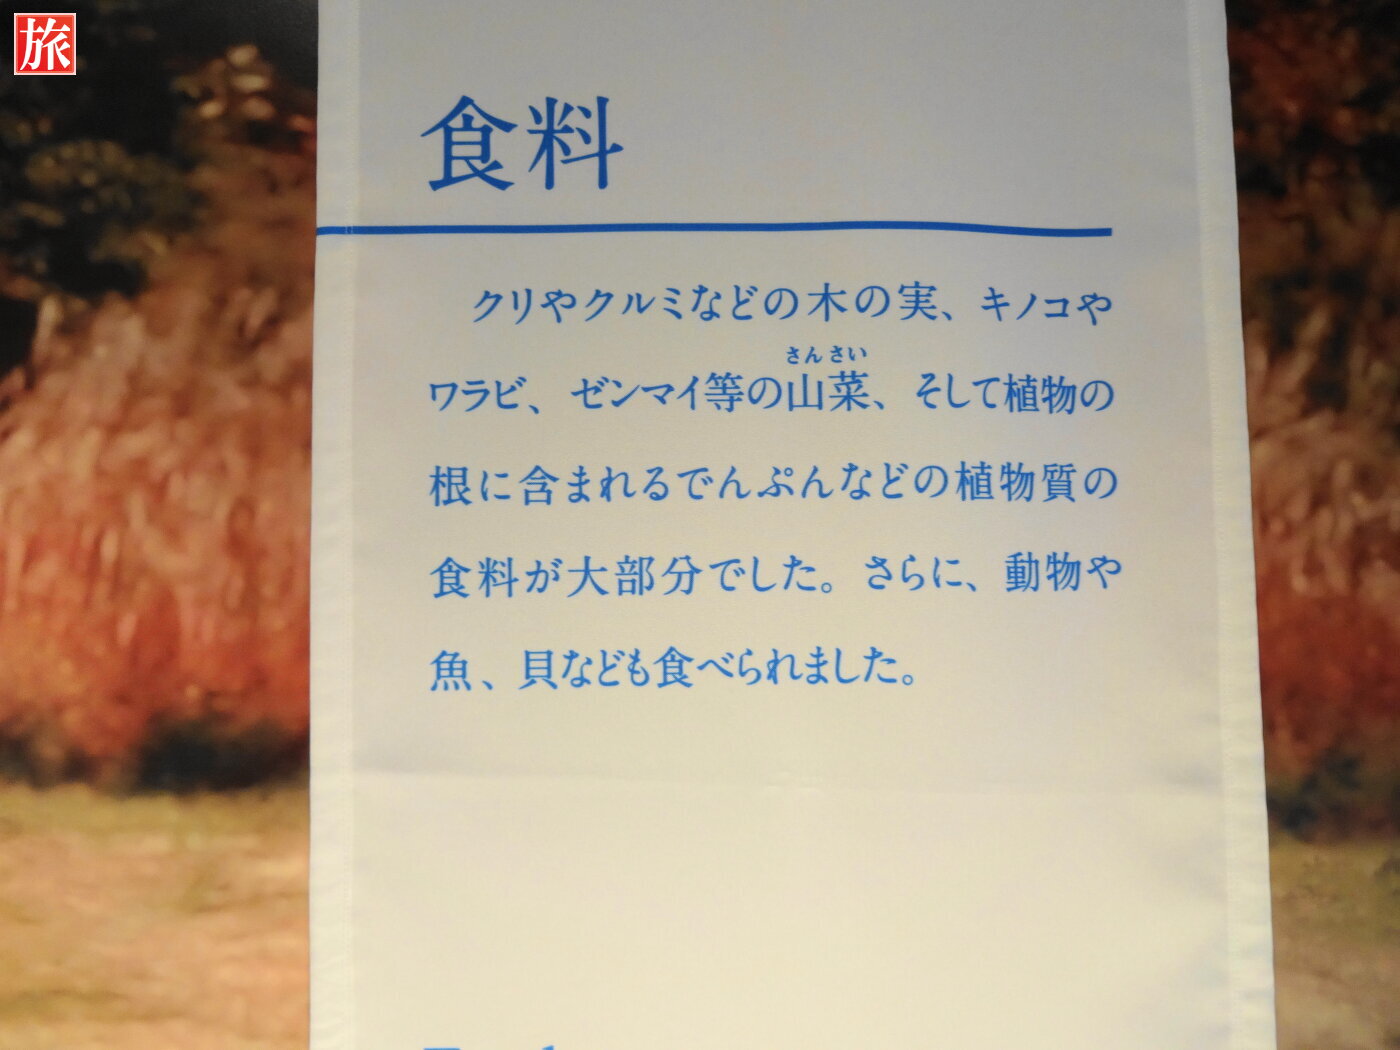 旅
食料
クリやクルミなどの木の実、キノコや
さんさい
ワラビ、ゼンマイ等の山菜、そして植物の
根に含まれるでんぷんなどの植物質の
食料が大部分でした。さらに、動物や
魚、貝なども食べられました。